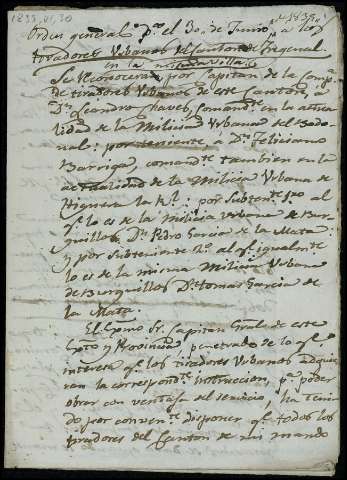 1835, VI, 30
"1835"
Orden general pa. el 30 de Junio a los
tiradores Urbanos del Canton de Fregenal
en la misma villa.
Se reconocera por Capitan de la Compa.
de tiradores Urbanos de este Canton, a
Dn. Leandro Chaves, Comandte. en la actua
lidad de la Milicia Urbana del Bodo-
nal: por teniente a Dn. Feliciano
Barriga, comandte. tambien en la
actualidad de la Milicia Urbana de
Higuera la Rl.: por Subtente. 1º. al
qe. lo es de la Milicia urbana de Bur-
guillos Dn. Pedro Garcia de la Mata:
y por Subteniente 2º. al qe. igualmte.
lo es de la misma Milicia Urbana
de Burguillos Dn. Tomas Garcia de
la Mata.
El Exmo. Sr. Capitan Gral. de este
Exto. y Provincia, penetrado de lo qe.
interesa qe. los tiradores Urbanos adquie
ran la correspondte. instruccion, pa. poder
obrar con ventaja del servicio, ha teni
do por convente. disponer qe. todos los
tiradores del Canton de mi mando